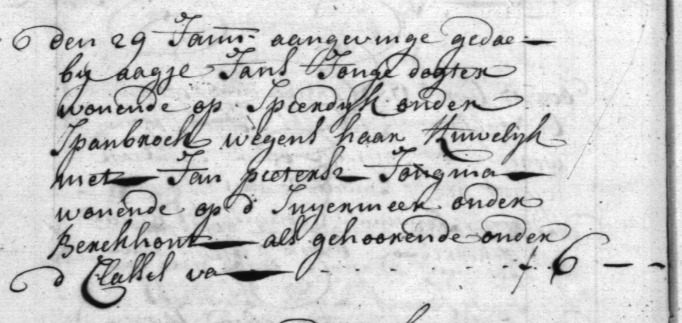 den 29 Janu: aangevinge gedae
by aagje Jans Jonge dogter
wonende op Speerdyk onder
Spanbroek wegens haar Huwelyk
met Jan pieters Jongma
wonende op d' onder
Berckhout als gehoorende onder
d Classes va - - - - f 6 - -